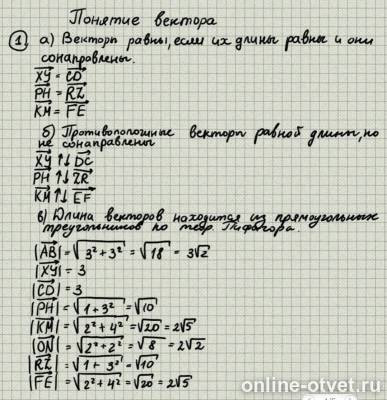 Понятие вектора
① а) Векторы равны, если их длины равны и они
сонаправлены.
XY = CD
PH = RZ
KM = FE
б) Противоположные векторы равной длины, но
не сонаправлены
XY ↑↓ DC
PH ↑↓ ZR
KM ↑↓ EF
в) Длина векторов находится из прямоугольных
треугольников по теор. Пифагора.
|AB| = √3²+3² = √18 = 3√2
|XY| = 3
|CD| = 3
|PH| = √1+3² = √10
|KM| = √2²+4² = √20 = 2√5
|ON| = √2²+2² = √8 = 2√2
|RZ| = √1+3² = √10
|FE| = √2²+4² = √20 = 2√5
online-otvet.ru